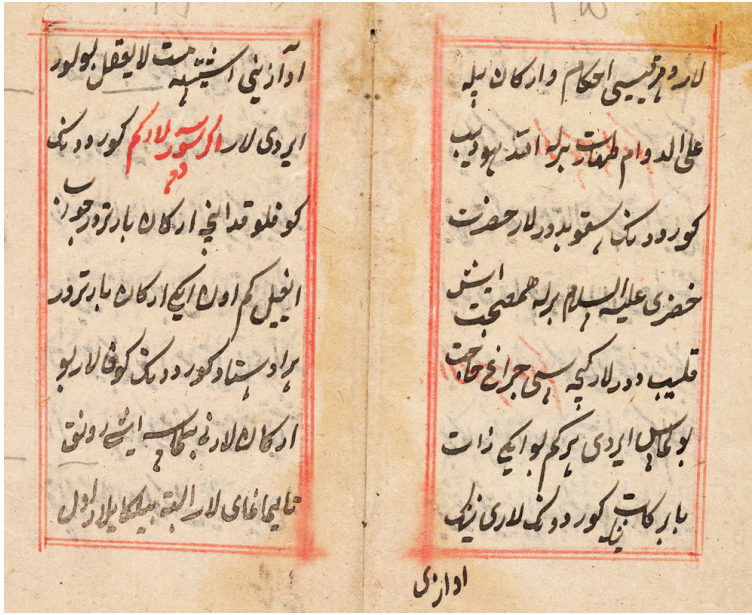 لار و هر قیسی احکام و ارکان بیله
علی الدوام طهارت برله اللّٰه هو دیب
کورودنک سقوبدورلار حضرت
خضری علیه السلام برله همصحبت
قلیب دورلار کیچه سی چراغ حاجت
بولماس ایردی هر کم بو ایکی ذات
با برکات نینک کوردونک لاری نینک
اوازی
اوازینی اشیتسه مست لا یعقل بولور
ایردی لار اکر سور لار کم کورودنک
کوفلو قدانچه ارکان بارترور جواب
انغیل کم اون ایکی ارکان بارترور
هر اوستاد کورودنک کوفلار بو
ارکان لارنی بیلماسه ایشی رونق
تابماغای لار البته بیلکایلار اول